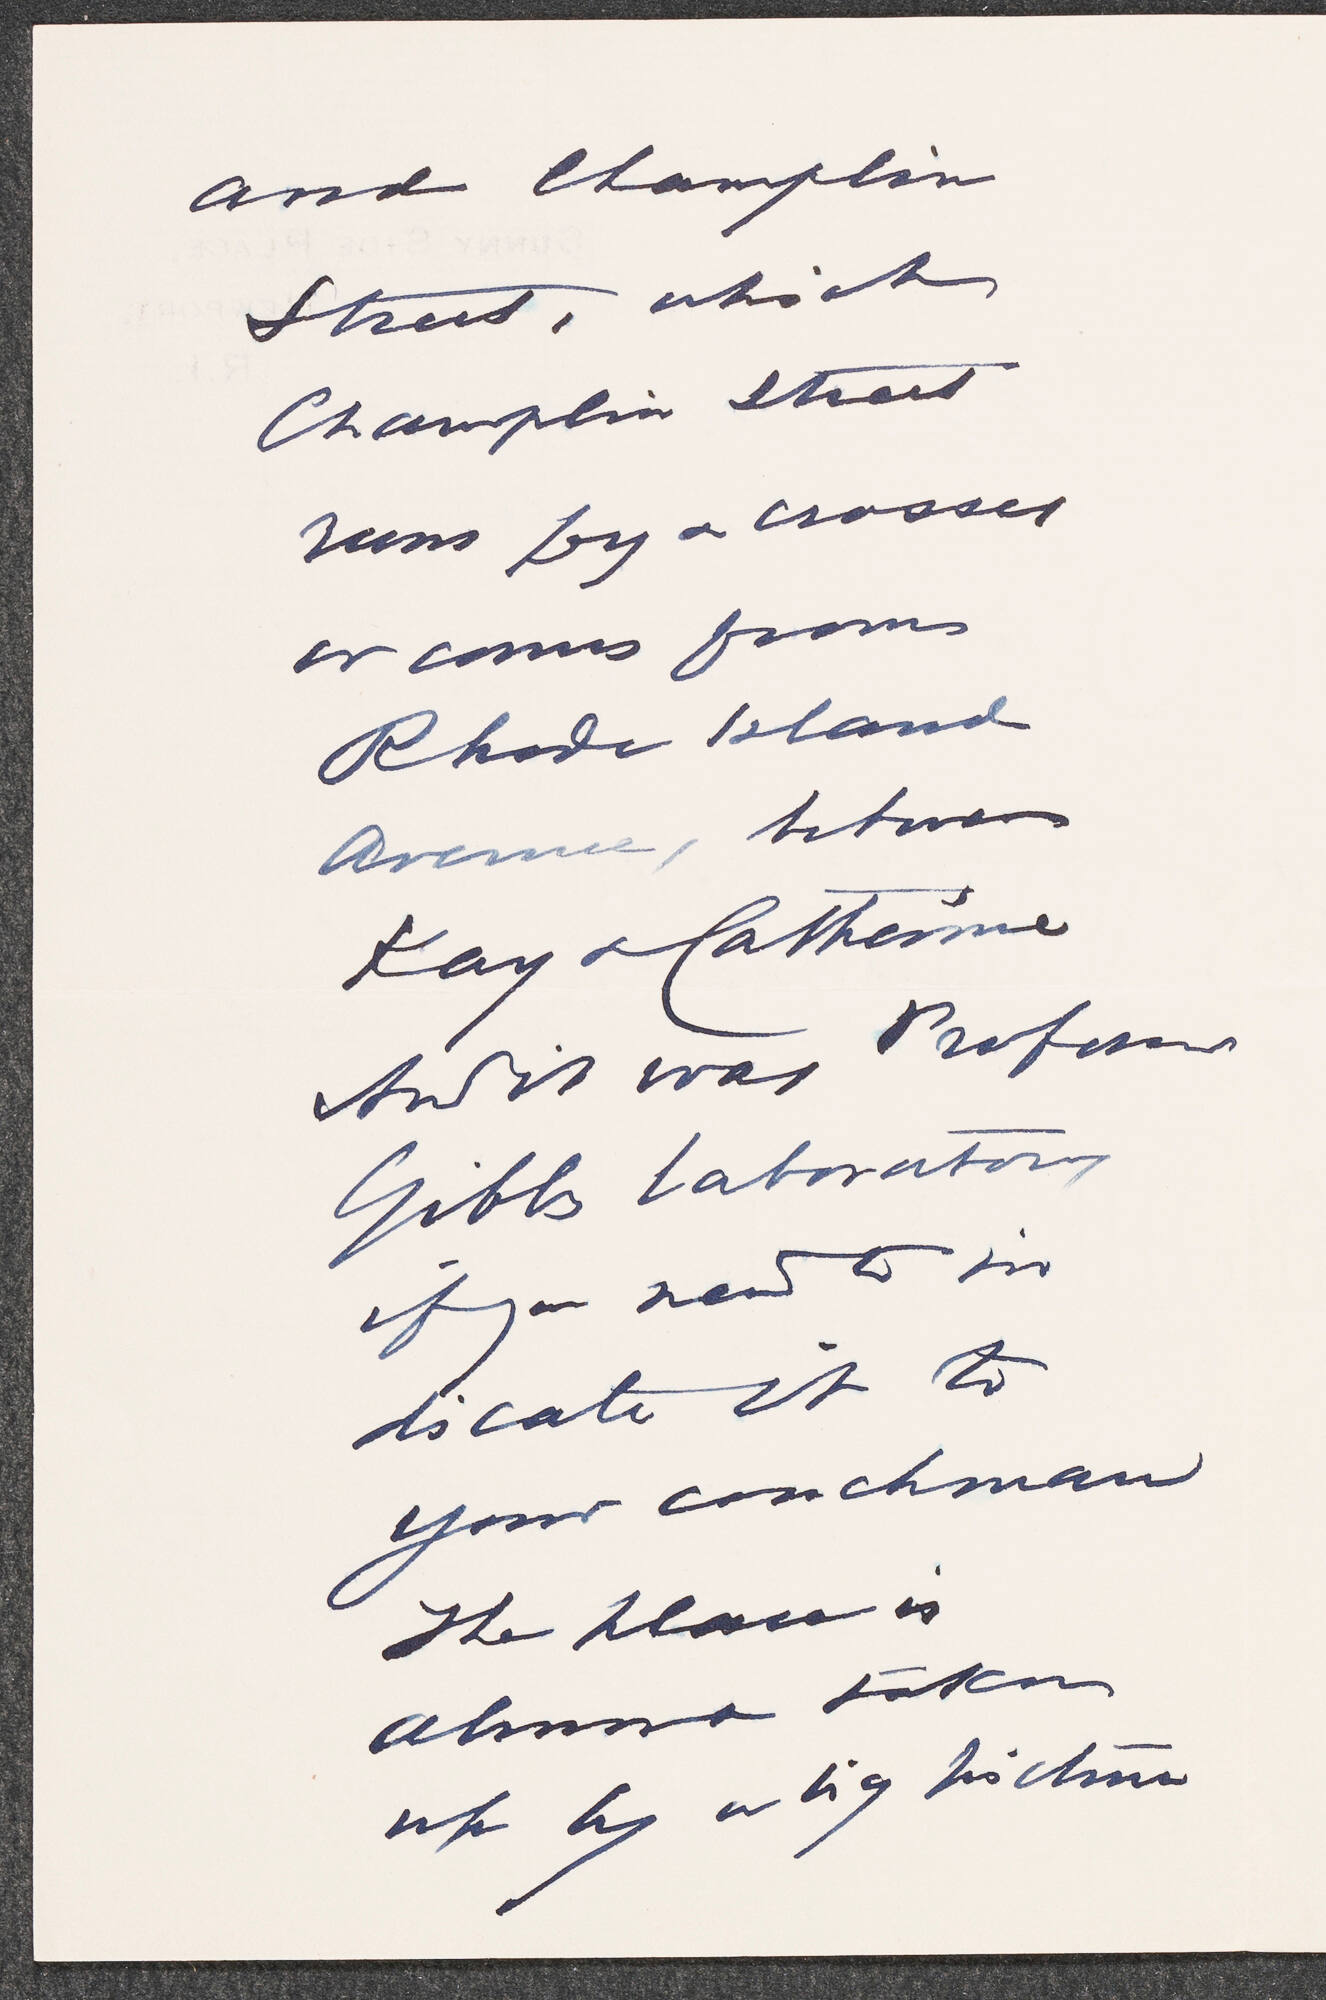 and Champlin
Street, which
Champlin Street
runs by & crosses
or comes from
Rhode Island
Avenue, between
Kay & Catherine
And it was Professor
Gibbs laboratory
if you need to in
dicate it to
your coachman
The place is
almost taken
up by a big picture
SUNNY SIDE PLACE,
NEWPORT,
R.I.